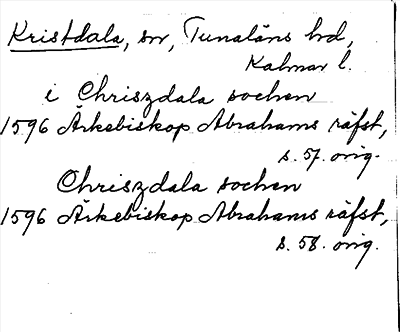 Kristdala, sn, Tunaläns hd,
Kalmar l.
i Chriszdala sochen
1596 Ärkebiskop Abrahams räfst,
s. 57. orig.
Chriszdala sochen
1596 Ärkebiskop Abrahams räfst,
s. 58. orig.